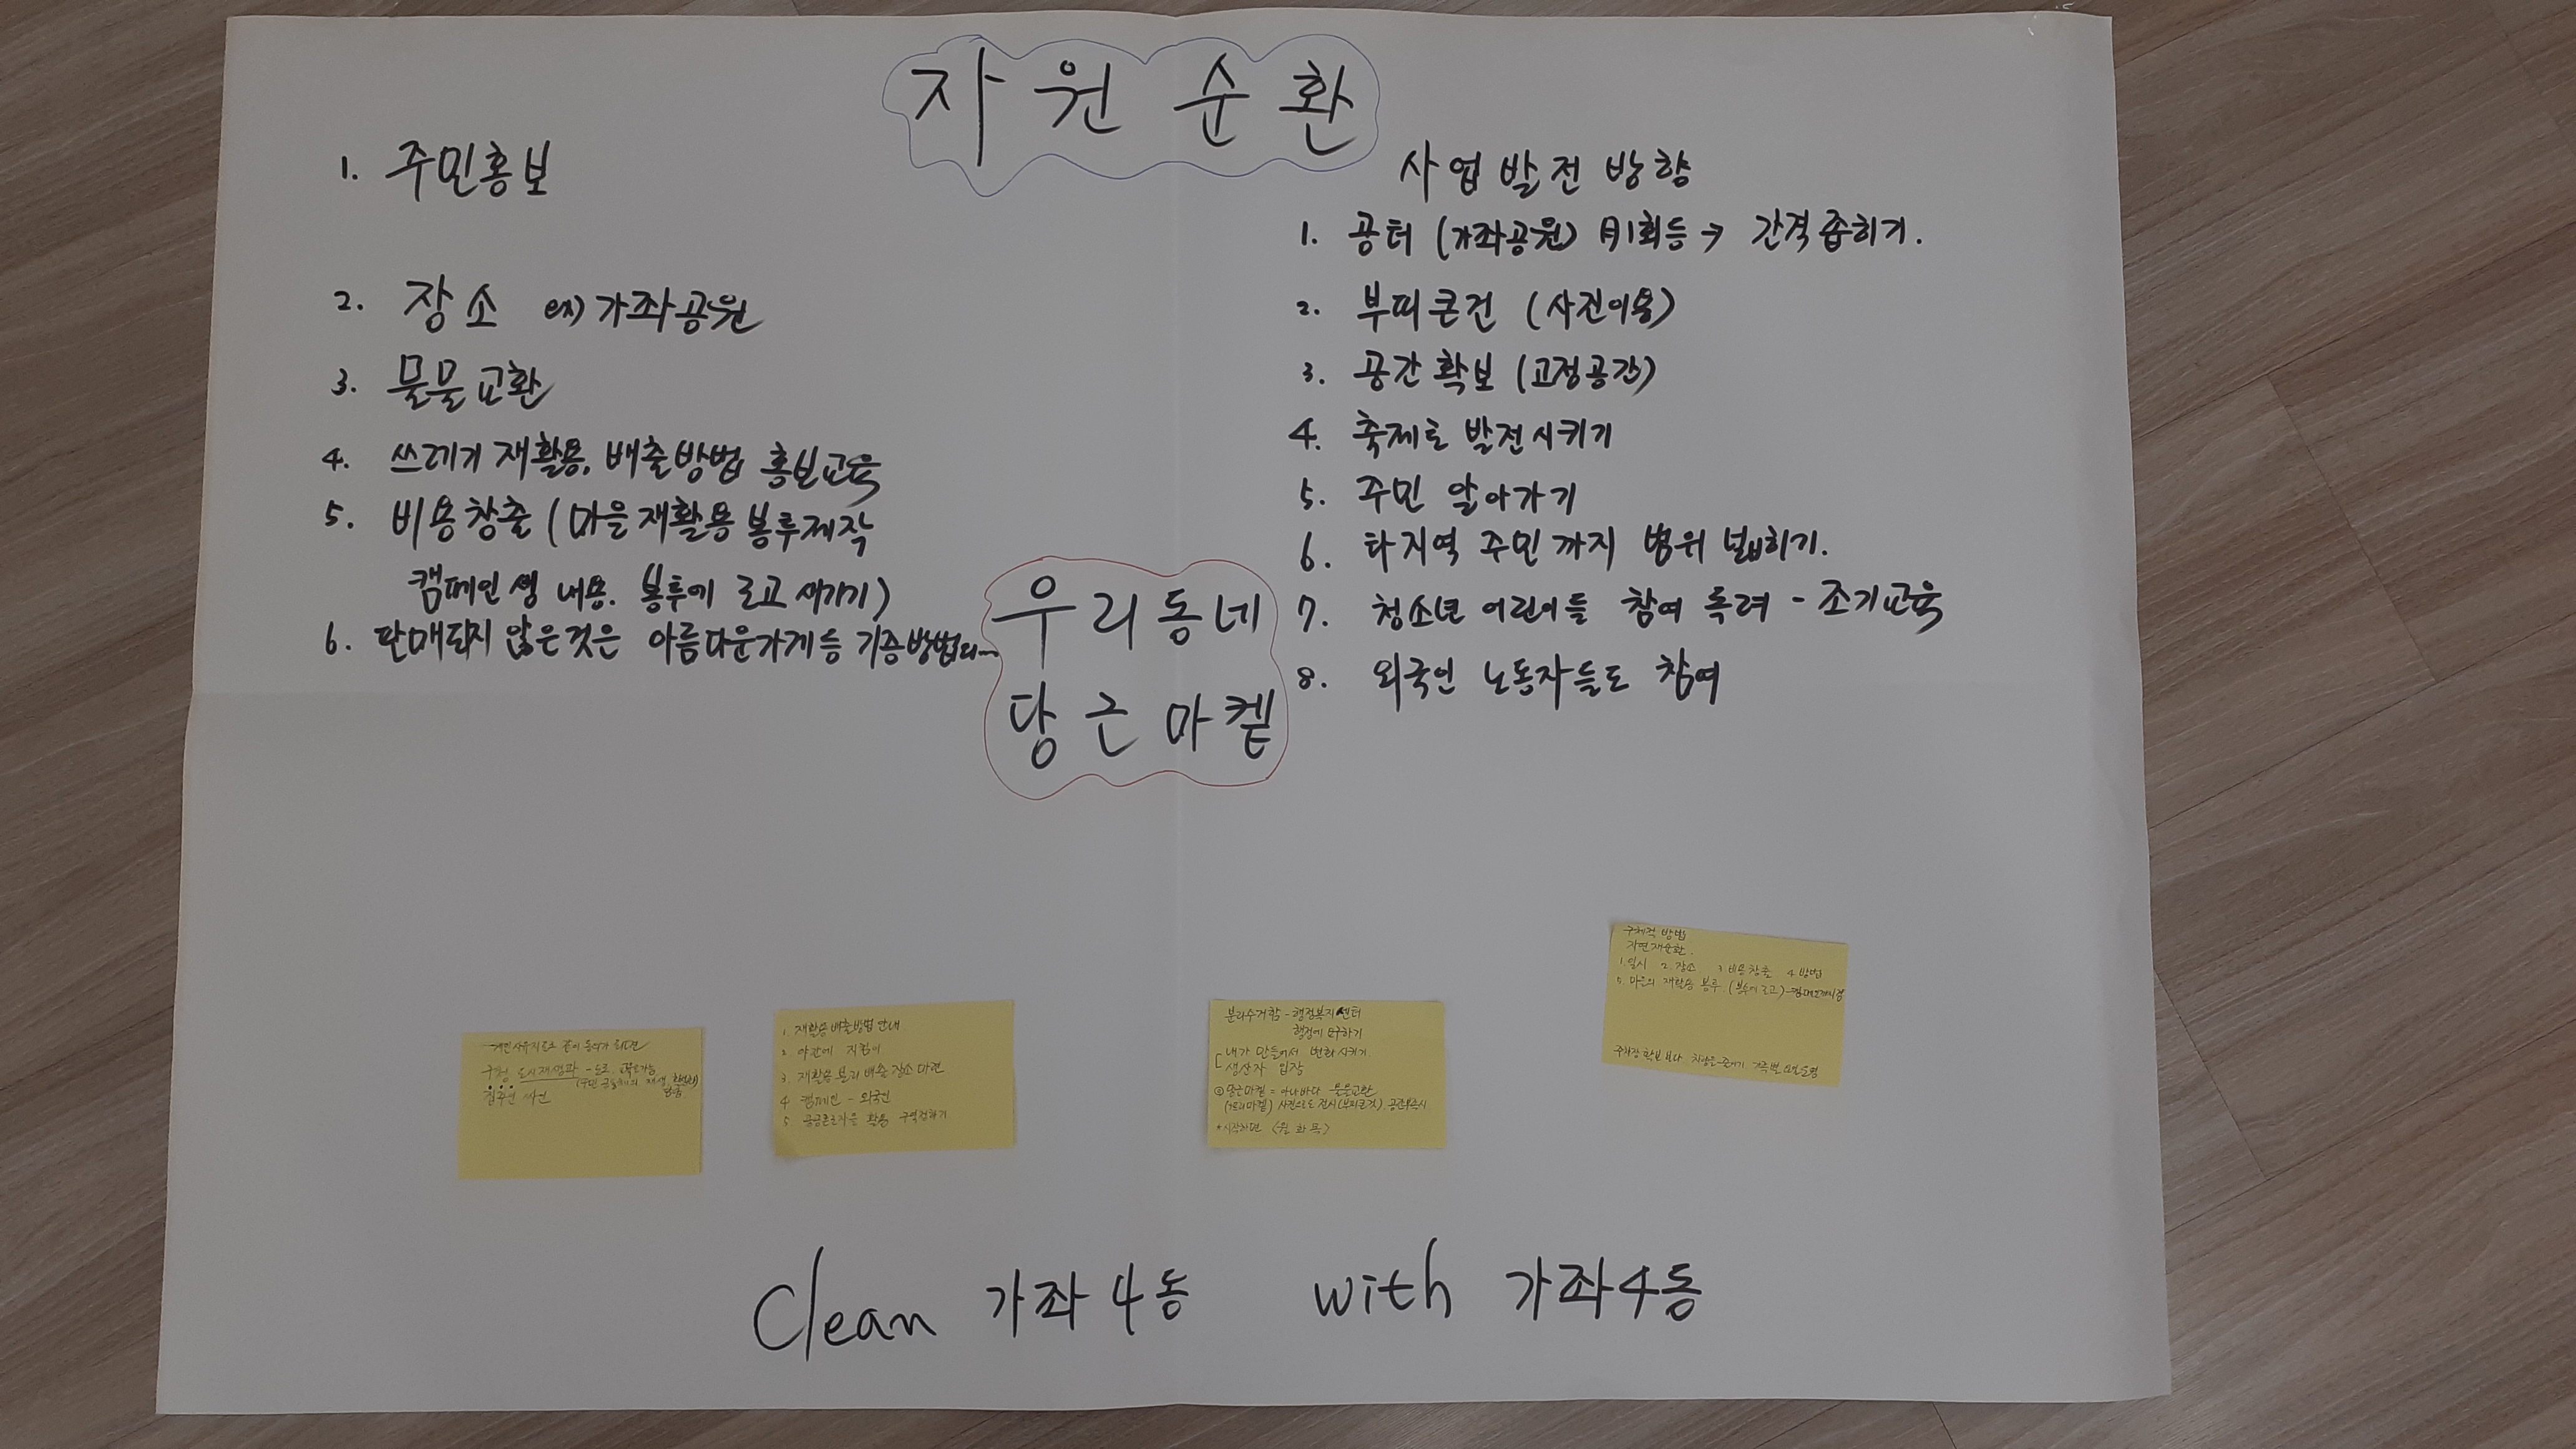 자원순환
1. 주민홍보
2. 장소 ex) 가좌공원
3. 물물교환
4. 쓰레기 재활용, 배출방법 홍보교육
5. 비용창출 (마을재활용 봉투제작
캠페인성 내용. 봉투에 로고 새기기)
6. 판매되지 않은것은 아름다운가게등 기증방법
우리동네
당근마켙
사업발전방향
1. 공터 (가좌공원) 月1회등 → 간격좁히기.
2. 부피큰건 (사진이용)
3. 공간확보 (고정공간)
4. 축제로 발전시키기
5. 주민 알아가기
6. 타지역 주민까지 범위 넓히기.
7. 청소년 어린이들 참여 독려 - 조기교육
8. 외국인 노동자들도 참여
구청 도시재생과 - 도로
집주인
1. 재활용 배출방법 안내
2. 야간에 지킴이
3. 재활용 분리 배출 장소 마련
4 캠페인 - 외국인
5 공공근로자를 활용 구역정하기
분리수거함 - 행정복지센터
행정에 요구하기
내가 만들어서 변화시키기
생산자 입장
당근마켙 = 아나바다 물물교환
사진으로 전시(부피큰것) 공간부족시
*시작하면 <월 화 목>
구체적 방법
자연재순환.
1.일시 2.장소 3 비용창출 4 방법
5. 마을의 재활용 봉투. (봉투에 로고)
주차장 확보 보다
Clean 가좌4동 with 가좌4동